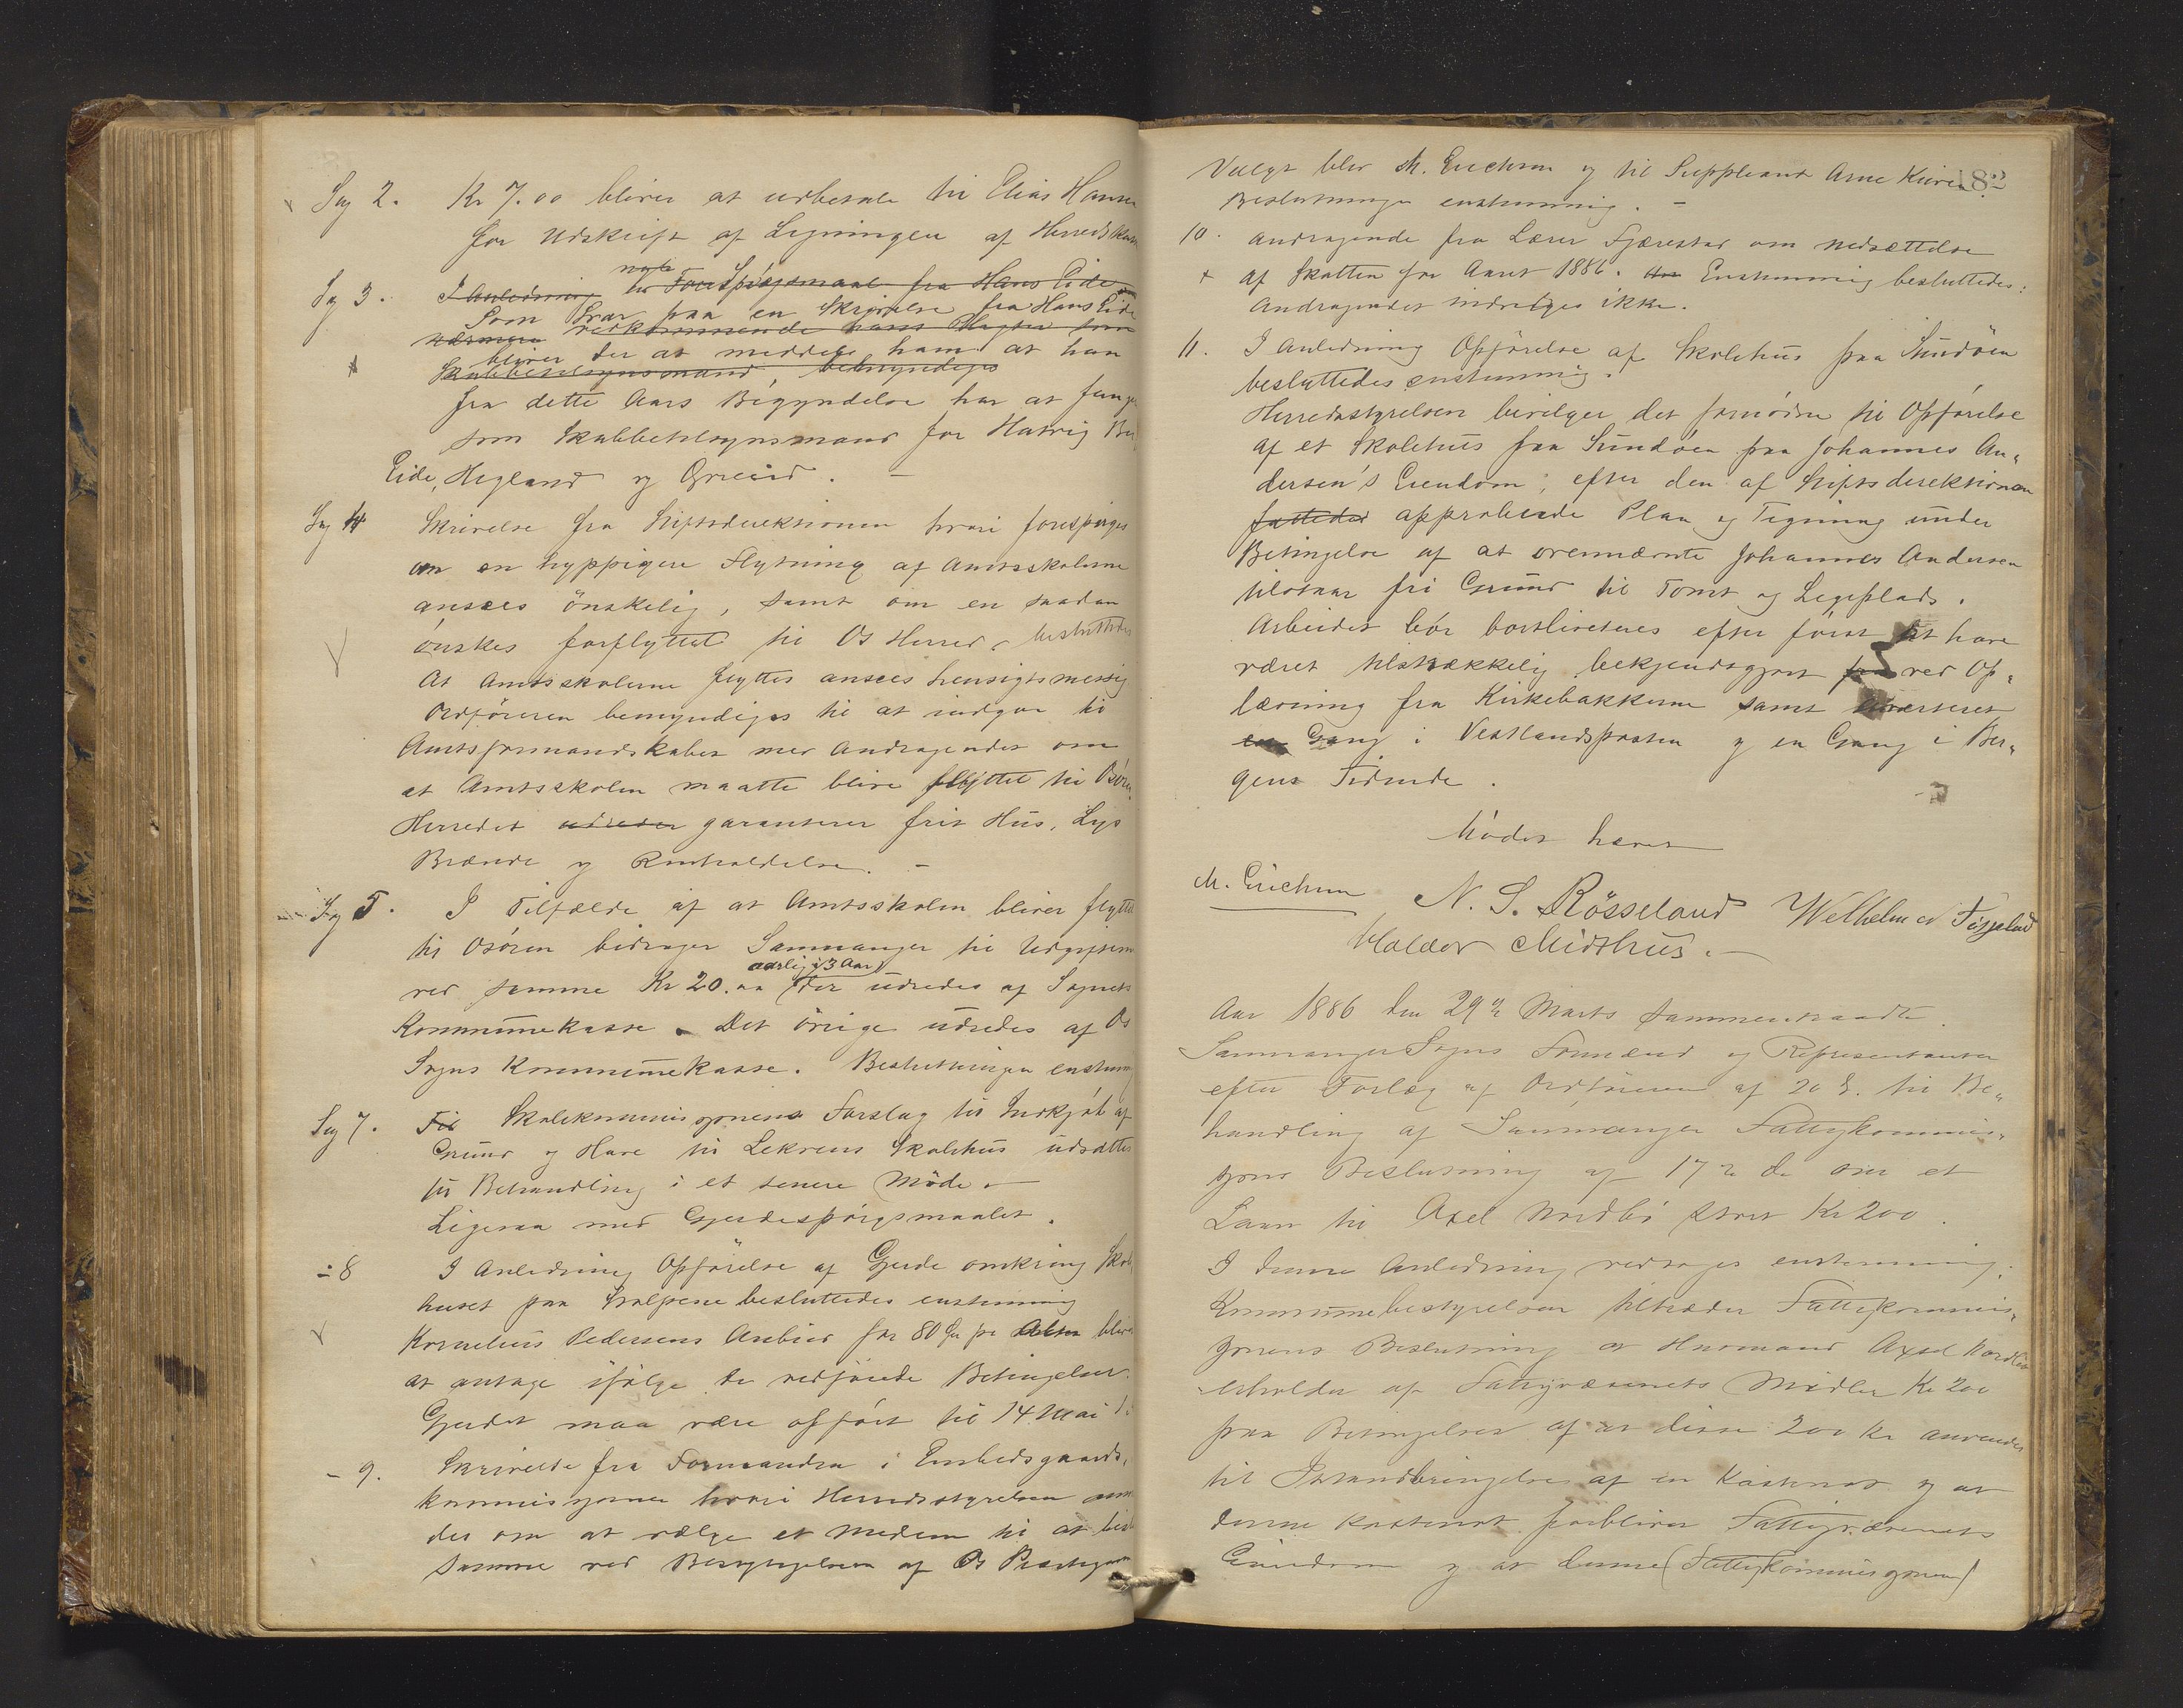 Sag 2. Kr 7.00 bliver at udbetale til Elias Hansen
for Udskrift af Ligningen af Herredskassen
Sag 3. I Anledning nyt Forespørgsmaal fra Hans Eide om
Som Svar paa en Skrivelse fra Hans Eide
nærmere vedkommende hans Pligter som
bliver der at meddele ham at han
Skabbetilsynsmand, bemyndiges
fra dette Aars Begyndelse har at funge
som Skabbetilsynsmand for Hatvig
Eide, Hegland og
Sag 4 Skrivelse fra Stiftsdirektionen hvori forespørges
om en hyppigere Flytning af Amtsskolerne
ansees ønskelig, samt om en saadan
ønskes forflyttet til Os Herred. besluttedes
At Amtsskolerne flyttes ansees hensigtsmessig
Ordføreren bemyndiges til at indgaa til
Amtsformandskabet med Andragendet om
at Amtsskolen maatte blive flyttet til Osøren
Herredet udreder garanterer frit Hus, Lys
Brænde og Renholdelse. –
Sag 5. I Tilfælde af at Amtsskolen bliver flyttet
til Osøren bidrager Samnanger til Udgifterne
aarlig i 3 Aar
ved samme Kr 20.00 der udredes af Sognets
Kommunekasse. Det øvrige udredes af Os
Sogns Kommunekasse. Beslutningen enstemmig
Sag 7. Til Skolekommisjonens Forslag til Indkjøb af
Grund og Have til Lekvens Skolehus udsættes
til Behandling i et senere Møde.
Ligesaa med Gjerdespørgsmaalet.
÷ 8 I Anledning Opførelse af Gjerde omkring Skole
huset paa besluttedes enstemmig
Kornelius Pedersens Anbud for 80 Øre pr Alen bliver
at antage ifølge de vedføiede Betingelser.
Gjerdet maa være opført til 14 Mai
– 9. Skrivelse fra Formanden i Embedsgaards
kommisjonen hvori Herredsstyrelsen anmo
des om at vælge et Medlem til at
samme ved Besigtigelsen af Os Præstegaard
182
Valgt blev M. Erichsen og til Suppleant Arne Kuven
Beslutningen enstemmig. –
10. Andragende fra Lærer Fjærestad om nedsættelse
af Skatten for Aaret 1886. Enstemmig besluttedes:
Andragendet indvilges ikke.
11. I Anledning Opførelse af Skolehus paa Sundøen
besluttedes enstemmig.
Herredsstyrelsen bevilger det fornødne til Opførelse
af et Skolehus paa Sundøen paa Johannes An„
dersen's Eiendom; efter den af Stiftsdirektionen
fattedes approberede Plan og Tegning under
Betingelse af at ovennævnte Johannes Andersen
tilstaar fri Grund til Tomt og Legeplads.
Arbeidet bør bortliciteres efter først at have
været tilstrækkelig bekjendtgjort fra ved Op„
læsning fra Kirkebakkerne samt averteret
en Gang i Vestlandsposten og en Gang i Ber„
gens Tidende.
Mødet hævet
M. Erichsen N. S. Røsseland Wilhelm
Haldor Midthus.
Aar 1886 den 29de Marts sammentraadte
Samnanger Sogns Formænd og Repræsentanter
efter Forlæg af Ordføreren af 20 d. til Be„
handling af Samnanger Fattigkommis„
jons Beslutning af 17de ds om et
Laan til Axel Nordbø stort Kr 200.
I denne Anledning vedtoges enstemmig:
Kommunebestyrelsen tiltræder Fattigkommis„
jonens Beslutning at Husmand Axel Nordbø
erholder af Fattigvæsenets Midler Kr 200
paa Betingelse af at disse 200 Kr anvendes
til Istandbringelse af en Kastenot og at
denne Kastenot forbliver Fattigvæsenets
Eiendom og at denne (Fattigkommisjonen)